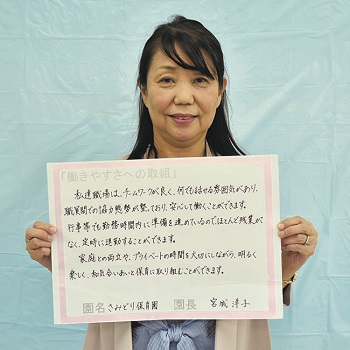 「働きやすさへの取組」
私達職場は、チームワークが良く、何でも話せる雰囲気があり、
職員間での協力態勢が整っており、安心して働くことができます。
行事等でも勤務時間内に準備を進めているので、ほとんど残業が
なく、定時に退勤することができます。
家庭との両立や、プライベートの時間を大切にしながら、明るく
楽しく、和気合いあいと保育に取り組むことができます。
園名 さみどり保育園 園長 宮城 淳子